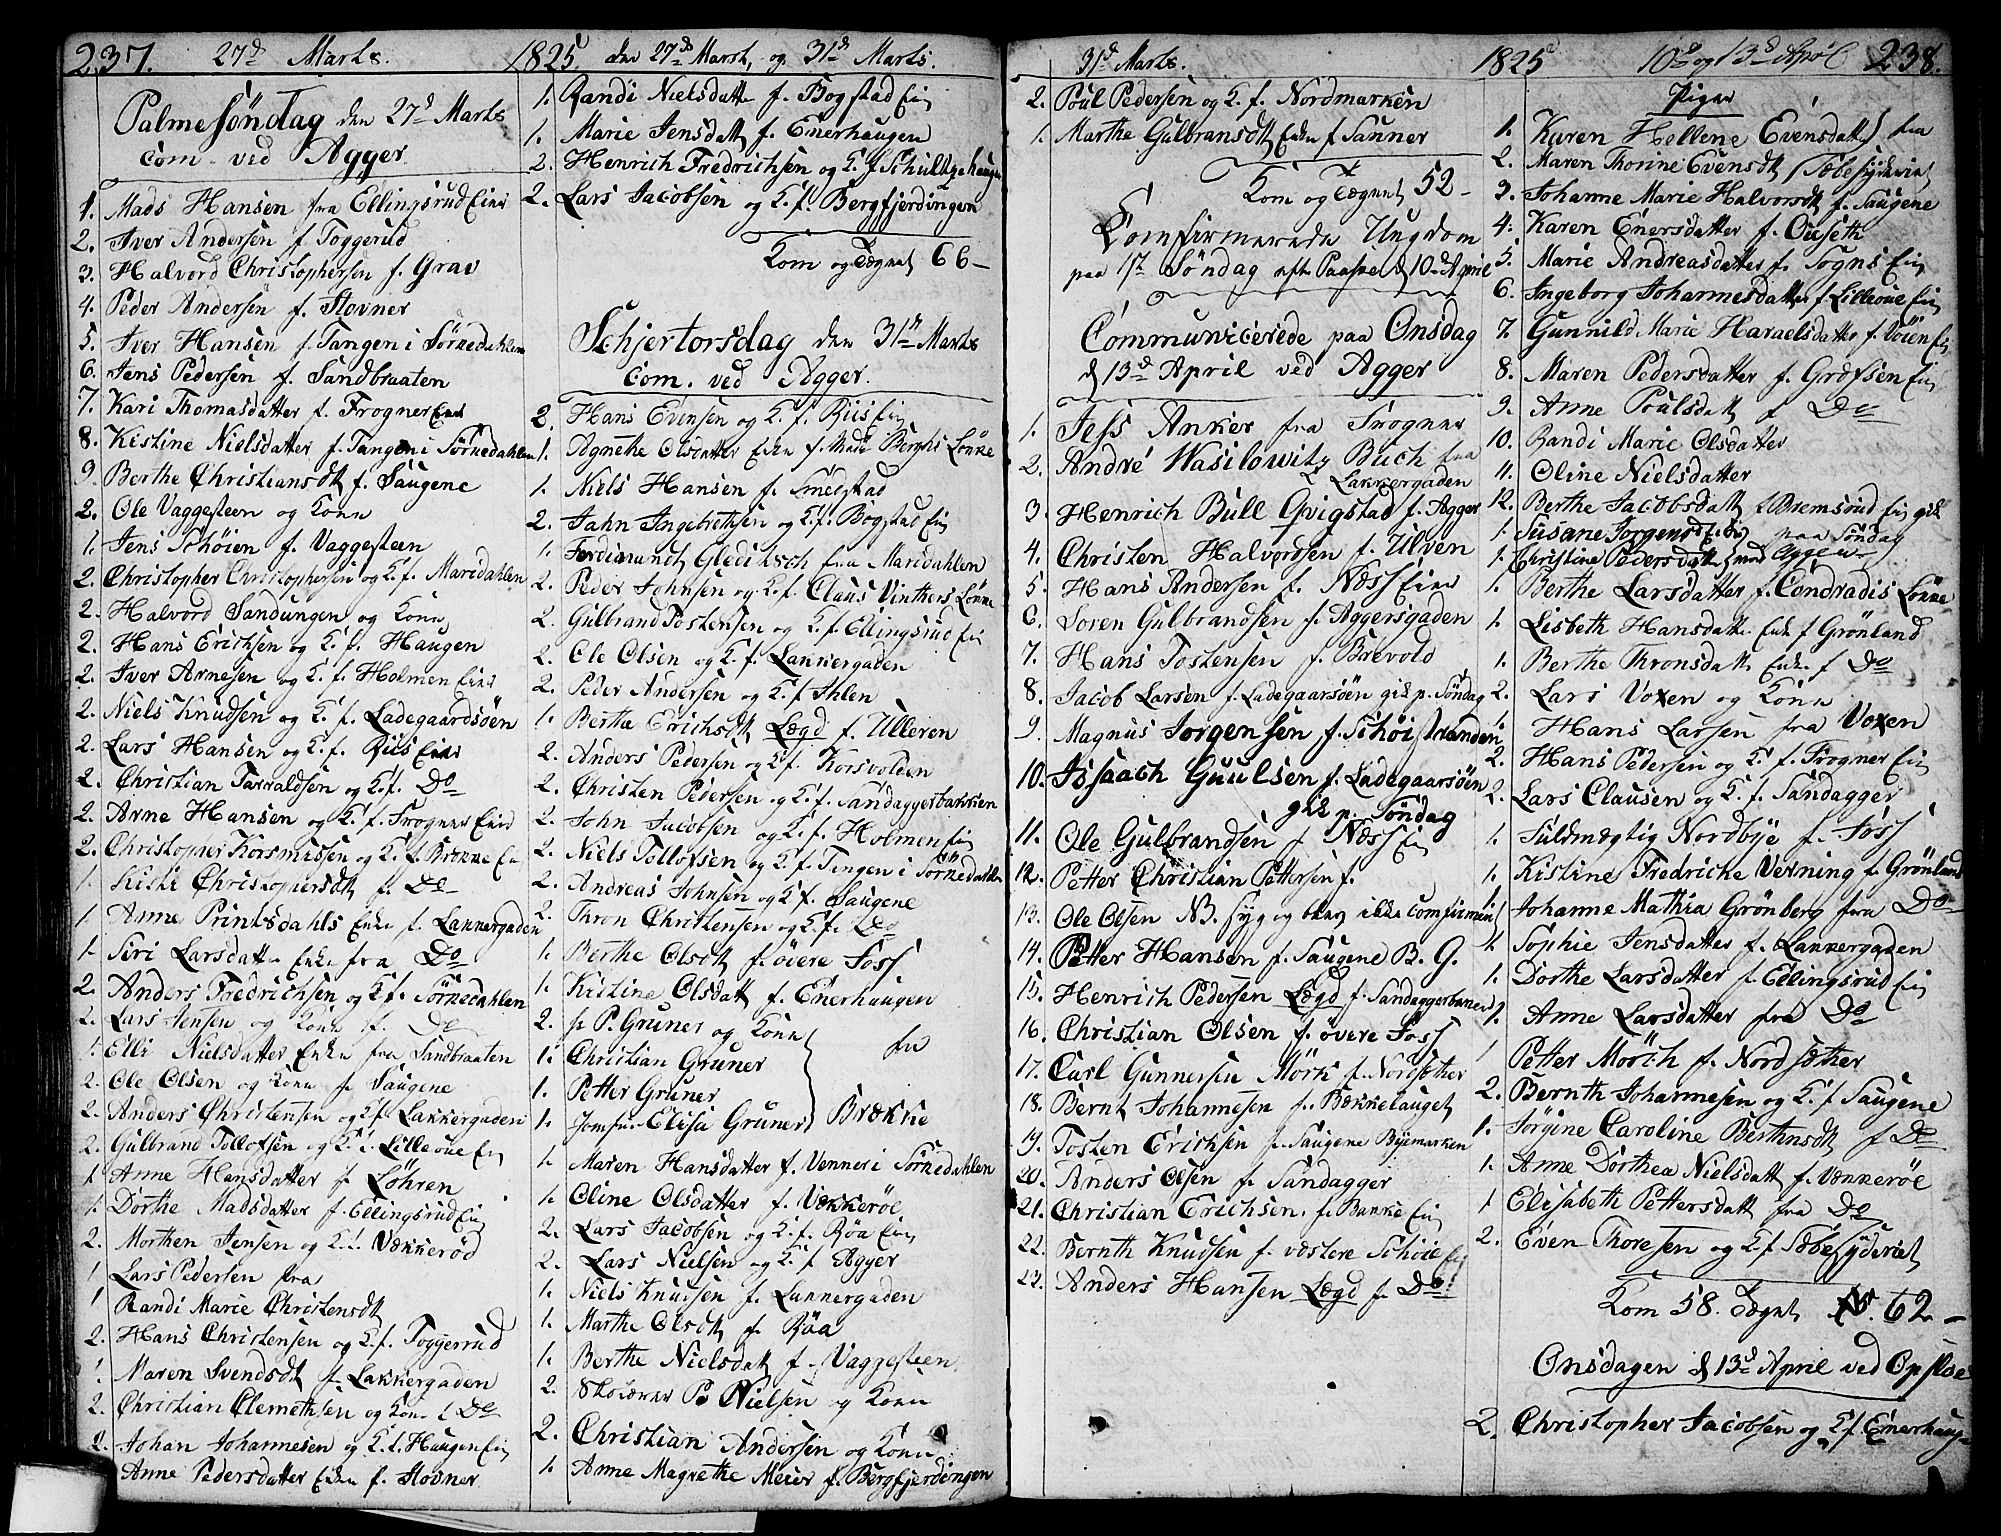 237. 27d Marts. 1825 den 27de Marst, og 31d Marts.
Palmesøndag den 27d Marts
com. ved Agger
1. Mads Hansen fra Ellingsrud Eier
2. Iver Andersen f. Toggerud
3. Halvord Christophersen f. Grav
4. Peder Andersen f. Stovner
5. Iver Hansen f. Tangen i Sørkedahlen
6. Jens Pedersen f. Sandbraaten
7. Kari Thomasdatter f. Frogner Eier
8. Kistine Nielsdatter f. Tangen i Sørkedahlen
9. Berthe Christiansdt f. Saugene
2. Ole Vaggesteen og Kone
1. Jens Schøien f. Vaggesteen
2. Christopher Christophersen og K. f. Maridahlen
2. Halvord Sandungen og Kone
2. Hans Erichsen og K. f. Haugen
2. Iver Arnesen og K. f. Holmen Eier
2. Niels Knudsen og K. f. Ladegaardsøen
2. Lars Hansen og K. f. Riis Eier
2. Christian Tarraldsen og K. f. Do
2. Arne Hansen og K. f. Frogner Eier
2. Christopher Korsmussen og K. f. Brekke Ei
1. Kisti Christophersdt f. Do
1. Anne Printsdahls Enke f. Lakkergaden
1. Siri Larsdatter Enke fra Do
2. Anders Fredrichsen og K. f. Sørkedahlen
2. Lars Jensen og Kone f. Do
1. Elli Nielsdatter Enke fra Sandbraaten
2. Ole Olsen og Kone f. Saugene
2. Anders Christensen og K. f. Lakkergaden
2. Gulbrand Tollofsen og K. f. Lilleøue Ei
1. Anne Hansdatter f. Løhren
1. Dorthe Madsdatter f. Ellingsrud Ei
2. Morthen Jensen og K. f. Vækkerød
1 Lars Pedersen fra
1 Randi Marie Christensdt
2. Hans Christensen og K. f. Toggerud
1. Maren Svendsdt f. Lakkergaden
2. Christian Clemethsen og Kone f. Do
2. Johan Johannesen og K. f. Haugen Ei
Anne Pedersdatter Enke f. Stovner
1. Randi Nielsdatter f. Bogstad Ei
1. Marie Jensdatt f. Enerhaugen
2. Henrich Fredrichsen og K. f. Schultzehaugen
2. Lars Jacobsen og K. f. Bergfjerdingen
Kom og Tægnet 66
Schjertorsdag den 31te Marts
com. ved Agger.
2. Hans Evensen og K. f. Riis Ei
1. Agnethe Olsdatter Enke f. Mads Berghs Løkke
1. Niels Hansen f. Smedstad
2. Jahn Ingebrethsen og K. f. Bogstad Ei
1. Ferdinandt Gleditsch fra Maridahlen
2. Peder Johnsen og K. f. Claus Vinthers Løkke
2. Gulbrand Tostensen og K. f. Ellingsrud Ei
2. Ole Olsen og K. f. Lakkergaden
2. Peder Andersen og K. f. Ihlen
1. Berthe Erichsdt Lægd f. Ulleren
2. Anders Pedersen og K. f. Korsvolden
2. Christen Pedersen og K. f. Sandaggerbakken
2. John Jacobsen og K. f. Holmen Ei
2. Niels Tollofsen og K. f. Tengen i Sørkedahlen
2. Andreas Johnsen og K. f. Saugene
2. Thron Christensen og K. f. Do
1. Berthe Olsdt f. øvere Foss
1. Kistine Olsdatt f. Enerhaugen
2. hr P. Gruner og Kone
1. Christian Gruner fra
1. Petter Gruner
1. Jomfrue Elisa Gruner Brække
1. Maren Hansdatter f. Venner i Sørkedahlen
1. Oline Olsdatter f. Vækkerøe
2. Lars Jacobsen og K. f. Røa Ei
2. Lars Nielsen og K. f. Agger
1. Niels Knudsen f. Lakkergaden
1. Marthe Olsdt f. Røa
1. Berthe Nielsdatt f. Vaggesteen
2. P. Nielsen og Kone
2. Christian Andersen og Kone
1. Anne Magrethe Meier f. Bergfjerdingen
31d Marts. 1825 10d og 13d April 238.
2. Poul Pedersen og K. f. Nordmarken
1. Marthe Gulbransdt Enke f. Sanner
Kom og Tægnet 52
Comfirmerede Ungdom
paa 1ste Søndag efter Paaske d 10de April
Communicerede paa Onsdag
d 13d April ved Agger
1. Jess Anker fra Frogner
2. André Wasilowitz Buch fra
Lakkergaden
3. Henrich Bull Qvigstad f. Agger
4. Christen Halvordsen f. Ulven
5. Hans Andersen f. Næss Eier
6. Soren Gulbrandsen f. Aggersgaden
7. Hans Tostensen f. Brevold
8. Jacob Larsen f. Ladegaarsøen gik p. Søndag
9. Magnus Jorgensen f. Schøistranden
10. Issaach Guulsen f. Ladegaarsøen
gik p. Søndag
11. Ole Gulbrandsen f Næss Ei
12. Petter Christian Pettersen f.
13. Ole Olsen NB. syg og blev ikke comfirmeret
14. Petter Hansen f. Saugene B. G.
15. Henrich Pedersen Lægd f. Sandaggerbakken
16. Christian Olsen f. øvere Foss
17. Carl Gunnersen Mörk f. Nordsæther
18. Bernt Johannesen f. Bækkelauget
19. Tosten Erichsen f. Saugene Byemarken
20. Anders Olsen f. Sandagger
21. Christian Erichsen f. Bakke Ei
22. Bernth Knudsen f. væstere Schøie Ei
23. Anders Hansen Lægd f. Do
Piger
1. Karen Hellene Evensdatt fra
2. Maren Thorine Evensdt Sæbesyderiet
3. Johanne Marie Halvorsdt f. Saugene
4. Karen Enersdatter f. Ouseth
5. Marie Andreasdatter f. Sogns Ei
6. Ingeborg Johannesdatter f. Lilleøue Ei
7. Gunnild Marie Haraelsdatter f. Vøien Ei
8. Maren Pedersdatter f. Grefsen Ei
9. Anne Poulsdatt f Do
10. Randi Marie Olsdatter
11. Oline Nielsdatter
12. Berthe Jacobsdatt f Bremsrud Ei gik
1. Susane Jorgensdt paa Søndag
1. Christine Pedersdatt Agger
1. Berthe Larsdatter f. Condradis Løkke
1. Lisbeth Hansdatter Enke f Grönland
1. Berthe Thronsdatt Enke f Do
2. Lars Voxen og Kone
1. Hans Larsen fra Voxen
2. Hans Pedersen og K. f. Frogner Ei
2. Lars Clausen og K. f. Sandagger
1. Fuldmægtig Nordbye f. Foss
1. Kistine Fredricke Verning f. Grønland
1 Johanne Mathia Grönberg fra Do
1. Sophie Jensdatter f. Lakkergaden
1. Dorthe Larsdatter f. Ellingsrud Ei
1. Anne Larsdatter fra Do
1 Petter Mörch f. Nordsæther
2. Bernth Johannesen og K. f Saugene
1. Jørgine Caroline Berthnsdt f Do
1. Anne Dorthea Nielsdatt f. Vækkerøe
1 Elisabeth Pettersdatt fra Do
2. Even Thoresen og K. f Sæbesyderiet
Kom 58. Tægnet 62
Onsdagen d 13d April ved Opsloe
2. Christopher Jacobsen og K. f. Enerhaug